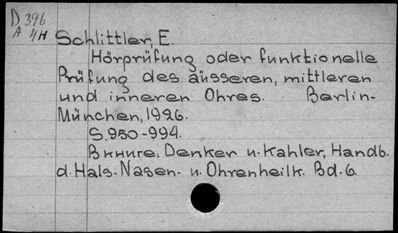 D 396
A 4H
Schlittler, E.
Hörprüfung oder funktionelle
Prüfung des äusseren, mittleren
und inneren Ohres. Berlin-
München, 1926.
S. 950-994.
Вкниге: Denker u. Kahler, Handb.
d. Hals- Nasen- u. Ohrenheilk. Bd. 6.